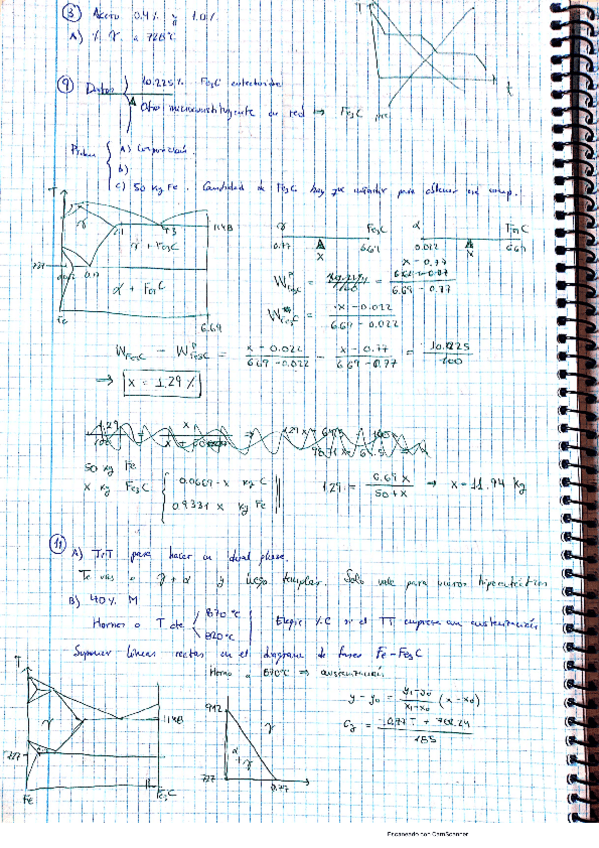 ③ Acero 0.4% y 1.0%
A) % γ a 728°C
T
t
⑨ Datos 10.225% Fe3C eutectoide
Otro microconstituyente en red → Fe3C pro
Piden A) Composición
b)
c) 50 kg Fe. Cantidad de Fe3C hay que añadir para obtener esa comp.
T
γ
4.3
1148
γ + Fe3C
727
0.77
α + Fe3C
Fe
6.69
γ Fe3C α Fe3C
0.77 x 6.69 0.022 x 6.69
W^P Fe3C = = (x - 0.77)/(6.69 - 0.77)
W Fe3C = (x - 0.022)/(6.69 - 0.022)
W Fe3C - W^P Fe3C = (x - 0.022)/(6.69 - 0.022) - (x - 0.77)/(6.69 - 0.77) = 10.225/100
→ x = 1.29 %
50 kg Fe
x kg Fe3C
0.0669 · x kg C
0.9331 x kg Fe
1.29 = 6.69 x/(50 + x) → x = 11.94 kg
⑪ A) TTT para hacer un dual phase.
Te vas a γ + α y luego templar. Solo vale para aceros hipoeutectoides
B) 40% M
Hornos a T de 870°C
820°C
Elegir %C si el TT empieza con austenización
Suponer líneas rectas en el diagrama de fases Fe-Fe3C
Horno a 870°C ⇒ austenización
T
γ
1148
727
Fe
Fe3C
912
γ
α + γ
727
0.77
y - y0 = (y1 - y0)/(x1 - x0) (x - x0)
Cγ = (-0.77 T + 702.24)/185
Escaneado con CamScanner